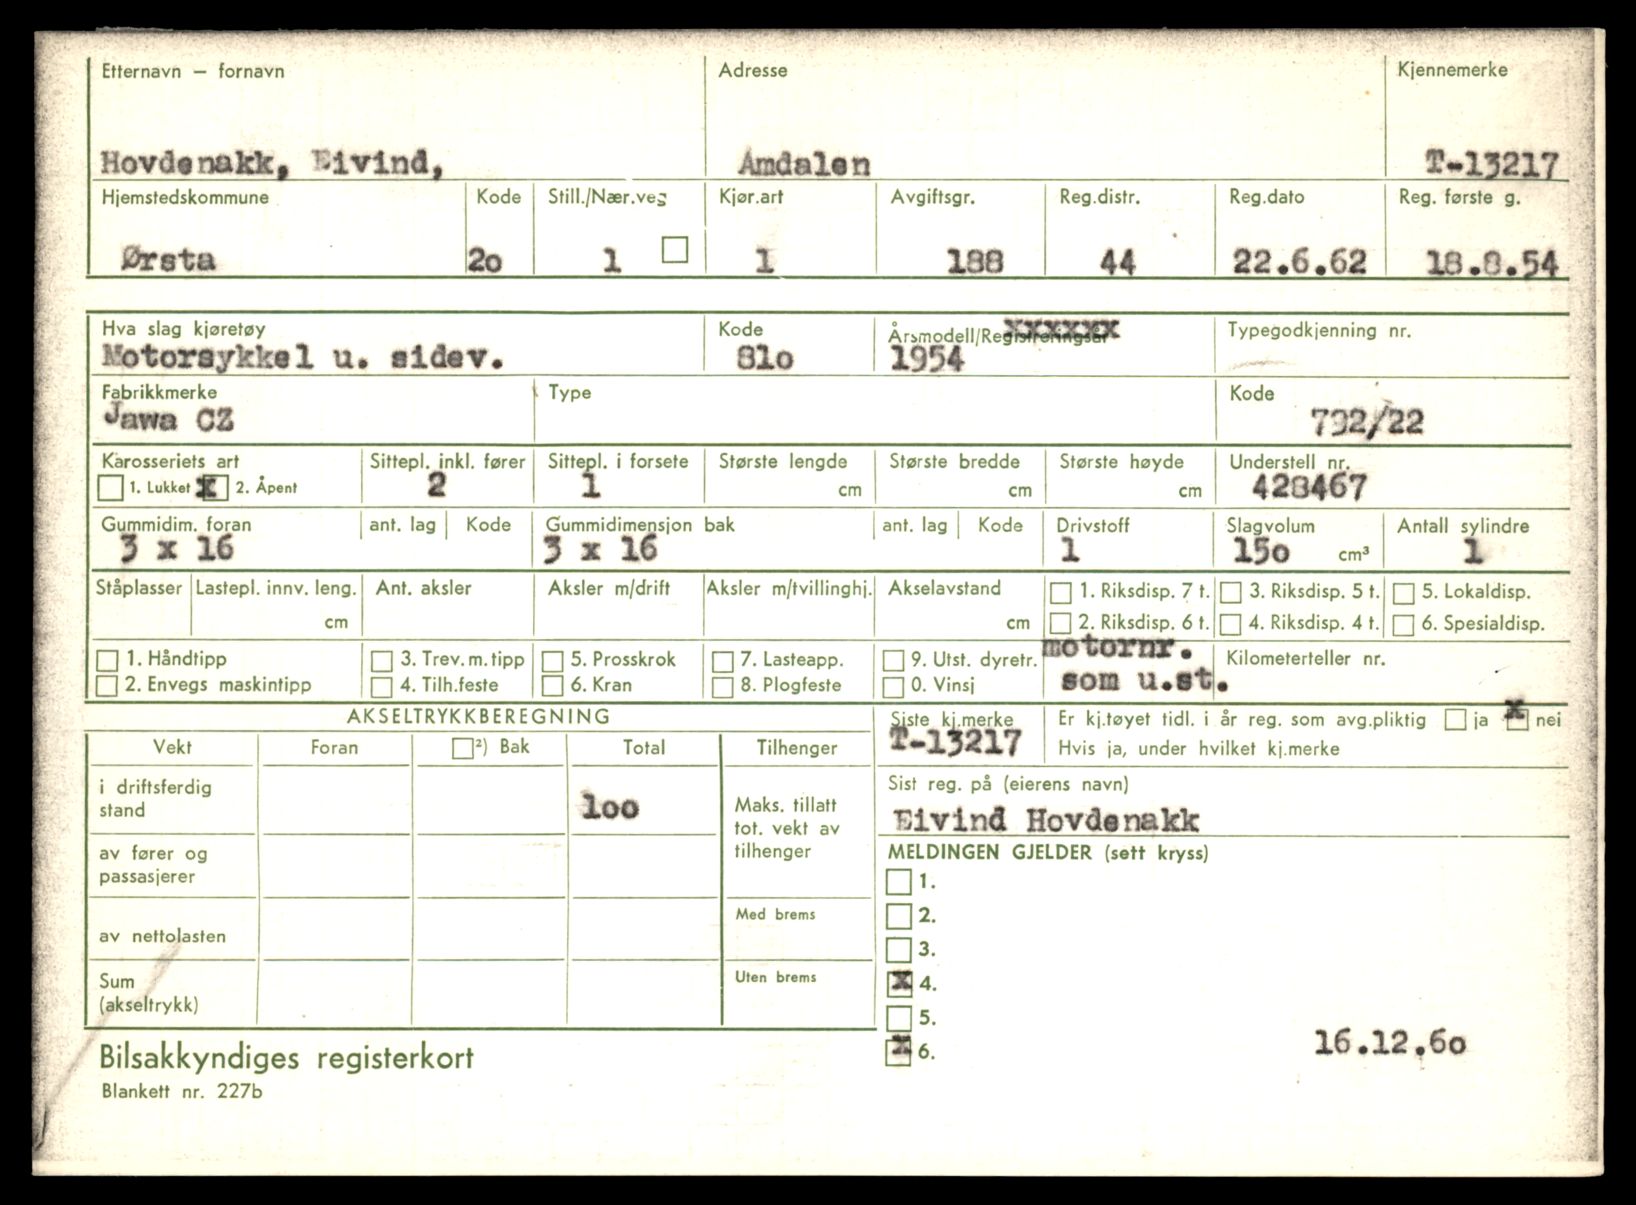 Etternavn — fornavn Adresse Kjennemerke
Hovdenakk, Eivind, Åmdalen T-13217
Hjemstedskommune Kode Still./Nær.veg Kjør.art Avgiftsgr. Reg.distr. Reg.dato Reg. første g.
Ørsta 2o 1 1 188 44 22.6.62 18.8.54
Hva slag kjøretøy Kode Årsmodell/Registreringsår xxxxxx Typegodkjenning nr.
Motorsykkel u. sidev. 81o 1954
Fabrikkmerke Type Kode
Jawa CZ 792/22
Karosseriets art Sittepl. inkl. fører Sittepl. i forsete Største lengde Største bredde Største høyde Understell nr.
1. Lukket x 2. Åpent 2 1 cm cm cm 428467
Gummidim. foran ant. lag Kode Gummidimensjon bak ant. lag Kode Drivstoff Slagvolum Antall sylindre
3 x 16 3 x 16 1 15o cm³ 1
Ståplasser Lastepl. innv. leng. Ant. aksler Aksler m/drift Aksler m/tvillinghj. Akselavstand 1. Riksdisp. 7 t. 3. Riksdisp. 5 t. 5. Lokaldisp.
cm cm 2. Riksdisp. 6 t. 4. Riksdisp. 4 t. 6. Spesialdisp.
1. Håndtipp 3. Trev. m. tipp 5. Prosskrok 7. Lasteapp. 9. Utst. dyretr. motornr. Kilometerteller nr.
2. Envegs maskintipp 4. Tilh.feste 6. Kran 8. Plogfeste 0. Vinsj som u.st.
AKSELTRYKKBEREGNING Siste kj.merke Er kj.tøyet tidl. i år reg. som avg.pliktig ja x nei
Vekt Foran ²) Bak Total Tilhenger T-13217 Hvis ja, under hvilket kj.merke
i driftsferdig stand 1oo Maks. tillatt tot. vekt av tilhenger Sist reg. på (eierens navn)
Eivind Hovdenakk
av fører og passasjerer MELDINGEN GJELDER (sett kryss)
1.
av nettolasten Med brems 2.
3.
Sum (akseltrykk) Uten brems x 4.
5.
Bilsakkyndiges registerkort x 6. 16.12.6o
Blankett nr. 227b